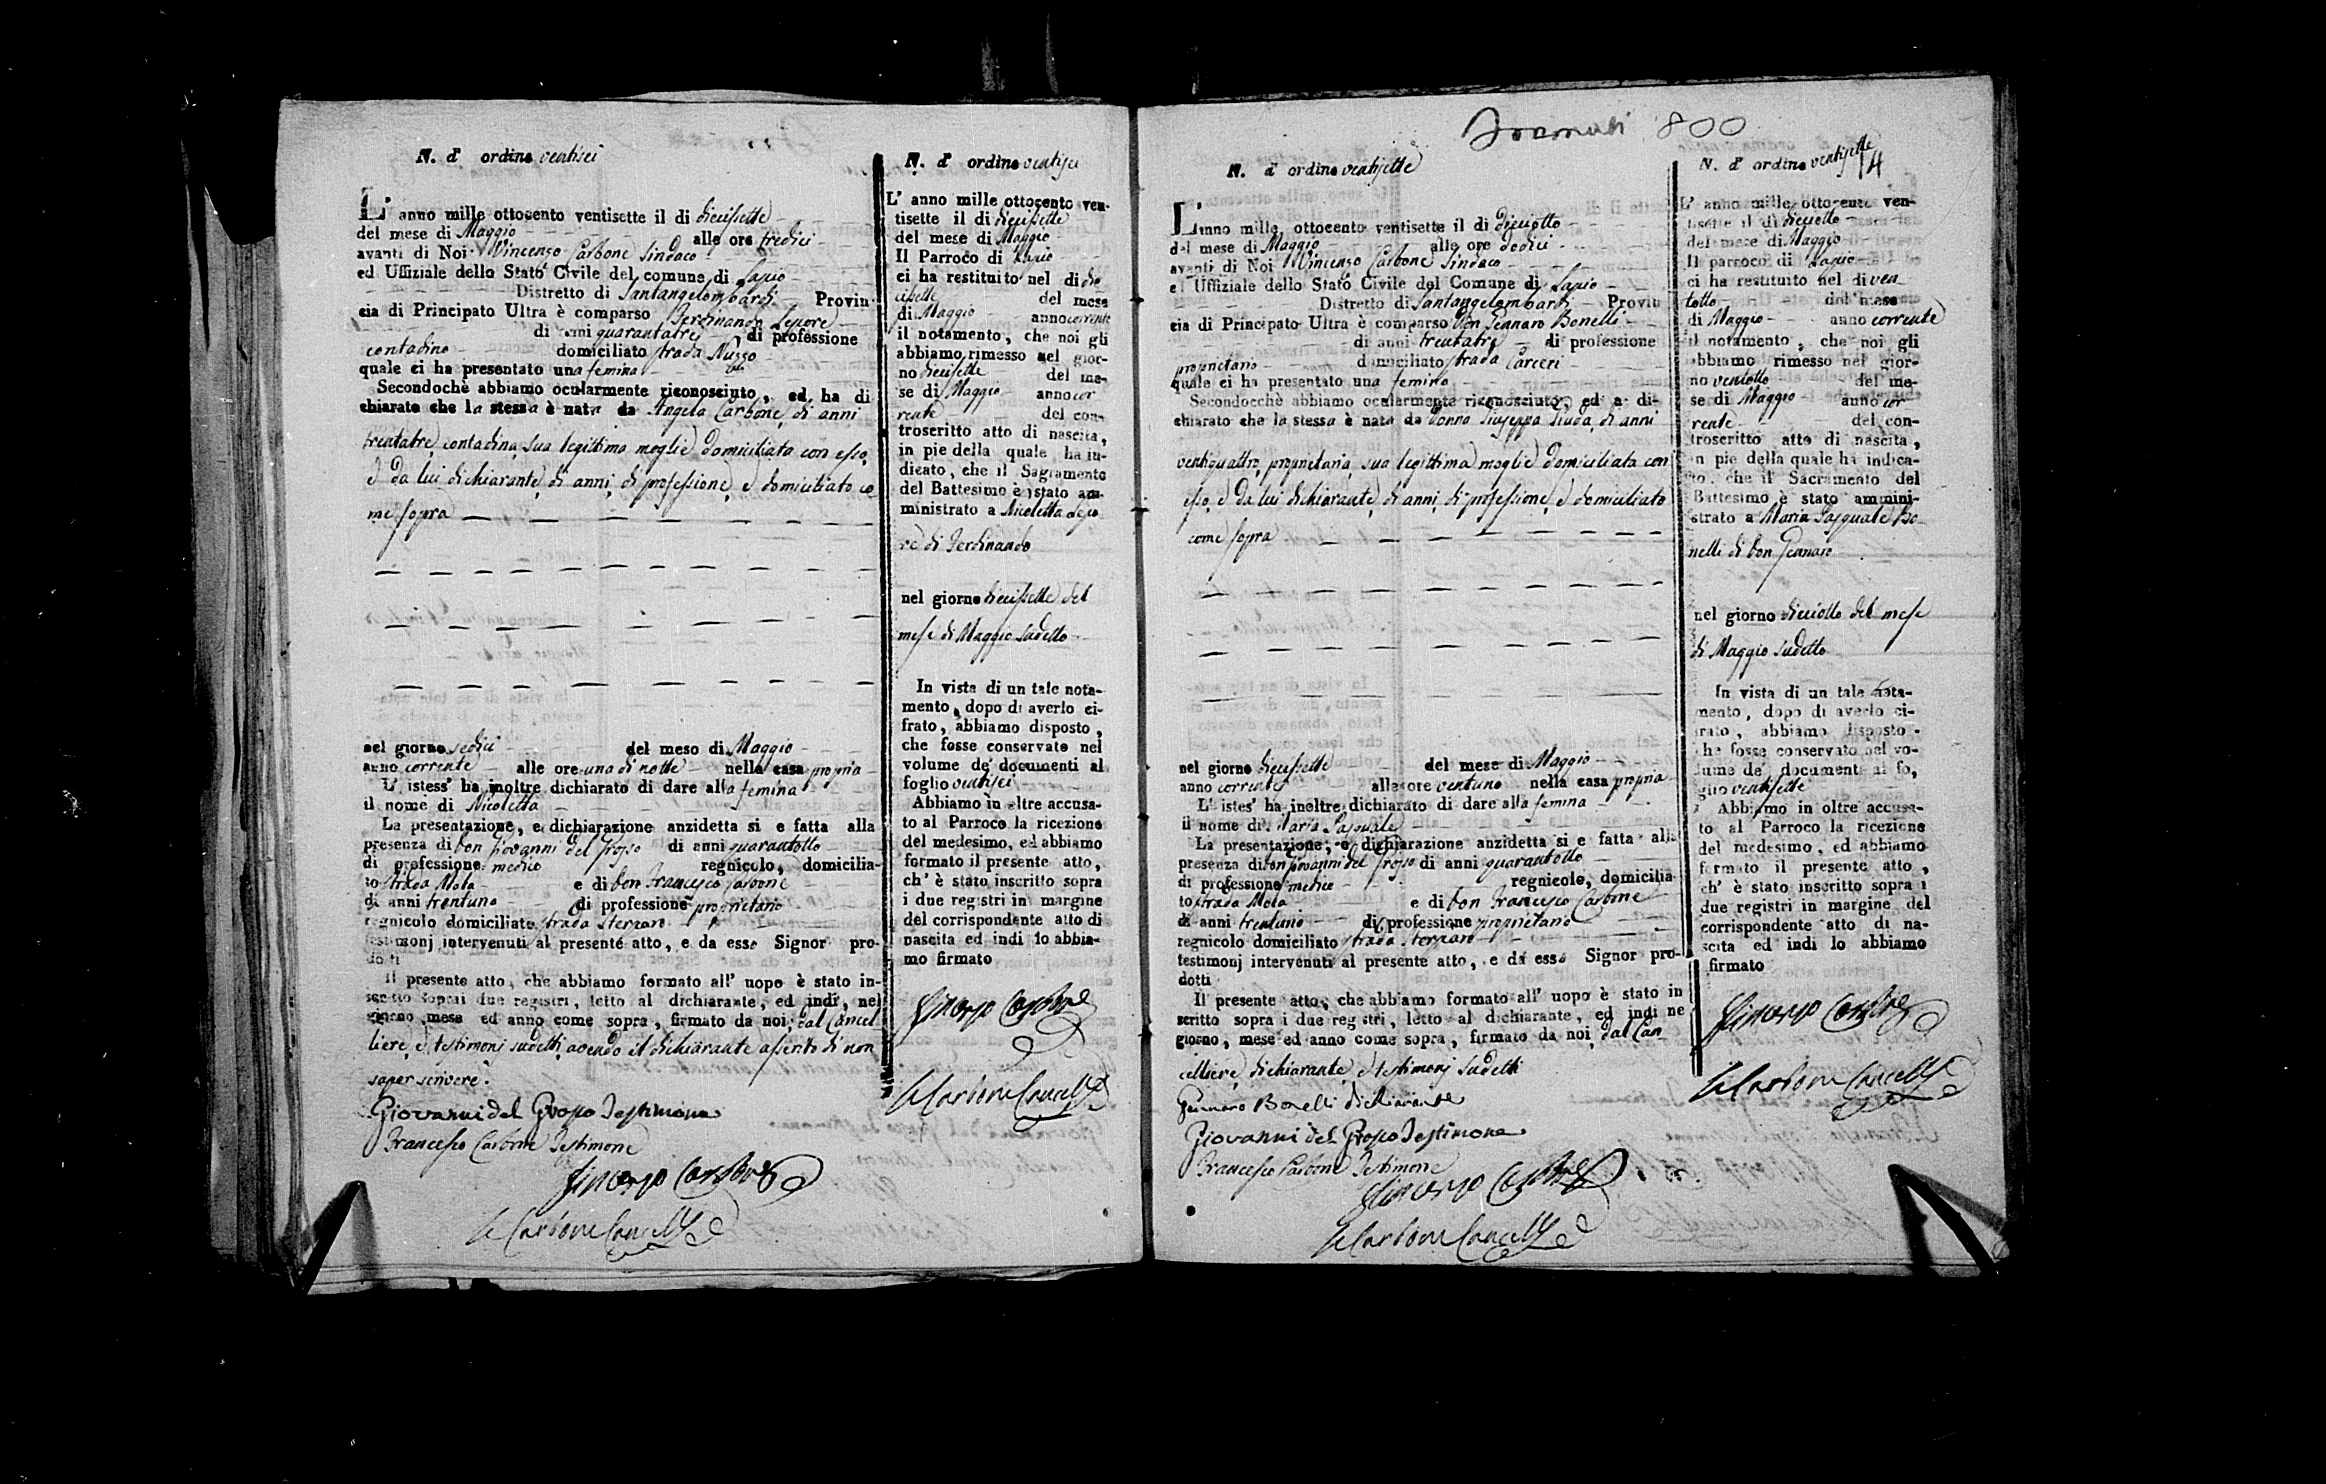 N. d' ordine ventisei
L' anno mille ottocento ventisette il di diecisette
del mese di Maggio alle ore tredici
avanti di Noi Vincenzo Carbone Sindaco
ed Uffiziale dello Stato Civile del comune di Lapio
Distretto di Santangelombardi Provin-
cia di Principato Ultra è comparso Ferdinando Lepore
di anni quarantatre di professione
contadino domiciliato strada Nuzzo
quale ci ha presentato una femina
Secondochè abbiamo ocularmente riconosciuto, ed ha di
chiarato che la stessa è nata da Angela Carbone, di anni
trentatre, contadina, sua legittima moglie domiciliata con esso,
e da lui dichiarante, di anni, di professione, e domiciliato co
me sopra
nel giorno sedici del mese di Maggio
anno corrente alle ore una di notte nella casa propria
L' istess' ha inoltre dichiarato di dare alla femina
il nome di Nicoletta
La presentazione, e dichiarazione anzidetta si e fatta alla
presenza di Don Giovanni del Grosso di anni quarantotto
di professione medico regnicolo, domicilia-
to strada Mola e di Don Francesco Carbone
di anni trentuno di professione proprietario
regnicolo domiciliato strada Sterparo
testimonj intervenuti al presente atto, e da esso Signor pro-
dotti
Il presente atto, che abbiamo formato all' uopo è stato in-
scritto soprai due registri, letto al dichiarante, ed indi, nel
giorno mese ed anno come sopra, firmato da noi, dal Cancel
liere, e testimonj sudetti, avendo il dichiarante asserito di non
saper scrivere.
Giovanni del Grosso Testimone
Francesco Carbone Testimone
Vincenzo Carbone
Carbone Cancell.e
N. d' ordine ventisei
L' anno mille ottocento ven-
tisette il di diecisette
del mese di Maggio
Il Parroco di Lapio
ci ha restituito nel di die
cisette del mese
di Maggio anno corrente
il notamento, che noi gli
abbiamo rimesso nel gior-
no diecisette del me-
se di Maggio anno cor
rente del con-
troscritto atto di nascita,
in pie della quale ha in-
dicato, che il Sagramento
del Battesimo è stato am-
ministrato a Nicoletta Lepo
re di Ferdinando
nel giorno diecisette del
mese di Maggio sudetto
In vista di un tale nota-
mento, dopo di averlo ci-
frato, abbiamo disposto,
che fosse conservato nel
volume de' documenti al
foglio ventisei
Abbiamo in oltre accusa-
to al Parroco la ricezione
del medesimo, ed abbiamo
formato il presente atto,
ch' è stato inscritto sopra
i due registri in margine
del corrispondente atto di
nascita ed indi lo abbia-
mo firmato
Vincenzo Carbone
Carbone Cancell.e
800
N. d' ordine ventisette
L'anno mille ottocento ventisette il di dieciotto
del mese di Maggio alle ore dodici
avanti di Noi Vincenzo Carbone Sindaco
e Uffiziale dello Stato Civile del Comune di Lapio
Distretto di Santangelombardi Provin
cia di Principato Ultra è comparso Don Gennaro Bonelli
di anni trentatre di professione
proprietario domiciliato strada Carceri
quale ci ha presentato una femina
Secondocchè abbiamo ocularmente riconosciuto, ed a di-
chiarato che la stessa è nata da Donna Giuseppa Giuda, di anni
ventiquattro, proprietaria, sua legittima moglie domiciliata con
esso, e da lui dichiarante, di anni, di professione, e domiciliato
come sopra
nel giorno diecisette del mese di Maggio
anno corrente alle ore ventuno nella casa propria
L' istes' ha inoltre dichiarato di dare alla femina
il nome di Maria Pasquale
La presentazione, e dichiarazione anzidetta si e fatta alla
presenza di Don Giovanni del Grosso di anni quarantotto
di professione medico regnicolo, domicilia-
to strada Mola e di Don Francesco Carbone
di anni trentuno di professione proprietario
regnicolo domiciliato strada Sterparo
testimonj intervenuti al presente atto, e da esso Signor pro-
dotti
Il presente atto, che abbiamo formato all' uopo è stato in
scritto sopra i due registri, letto al dichiarante, ed indi ne
giorno, mese ed anno come sopra, firmato da noi, dal Can
celliere, dichiarante, e testimonj sudetti
Gennaro Bonelli dichiarante
Giovanni del Grosso Testimone
Francesco Carbone Testimone
Vincenzo Carbone
Carbone Cancell.e
N. d' ordine ventisette
14
L' anno mille ottocento ven-
tisette il di dieciotto
del mese di Maggio
Il parroco di Lapio
ci ha restituito nel di ven
totto del mese
di Maggio anno corrente
il notamento, che noi gli
abbiamo rimesso nel gior-
no ventotto del me-
se di Maggio anno cor
rente del con-
troscritto atto di nascita,
in pie della quale ha indica-
to, che il Sacramento del
Battesimo è stato ammini-
strato a Maria Pasquale Bo-
nelli di Don Gennaro
nel giorno dieciotto del mese
di Maggio sudetto
In vista di un tale nota-
mento, dopo di averlo ci-
frato, abbiamo disposto
che fosse conservato nel vo-
lume de' documenti al fo,
glio ventisette
Abbiamo in oltre accusa-
to al Parroco la ricezione
del medesimo, ed abbiamo
formato il presente atto,
ch' è stato inscritto sopra i
due registri in margine del
corrispondente atto di na-
scita ed indi lo abbiamo
firmato
Vincenzo Carbone
Carbone Cancell.e